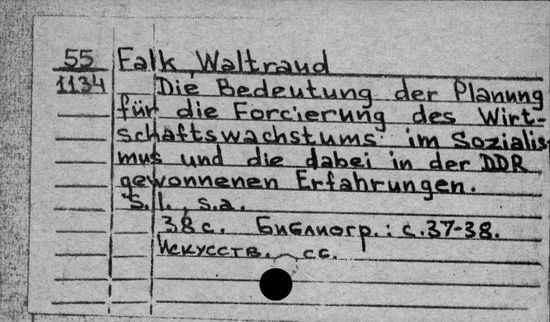 55 Falk, Waltraud
1134 Die Bedeutung der Planung
für die Forcierung des Wirt-
schaftswachstums im Sozialis-
mus und die dabei in der DDR
gewonnenen Erfahrungen.
S.l., s.a.
38 с. Библиогр.: с.37-38.
Искусств. сс.